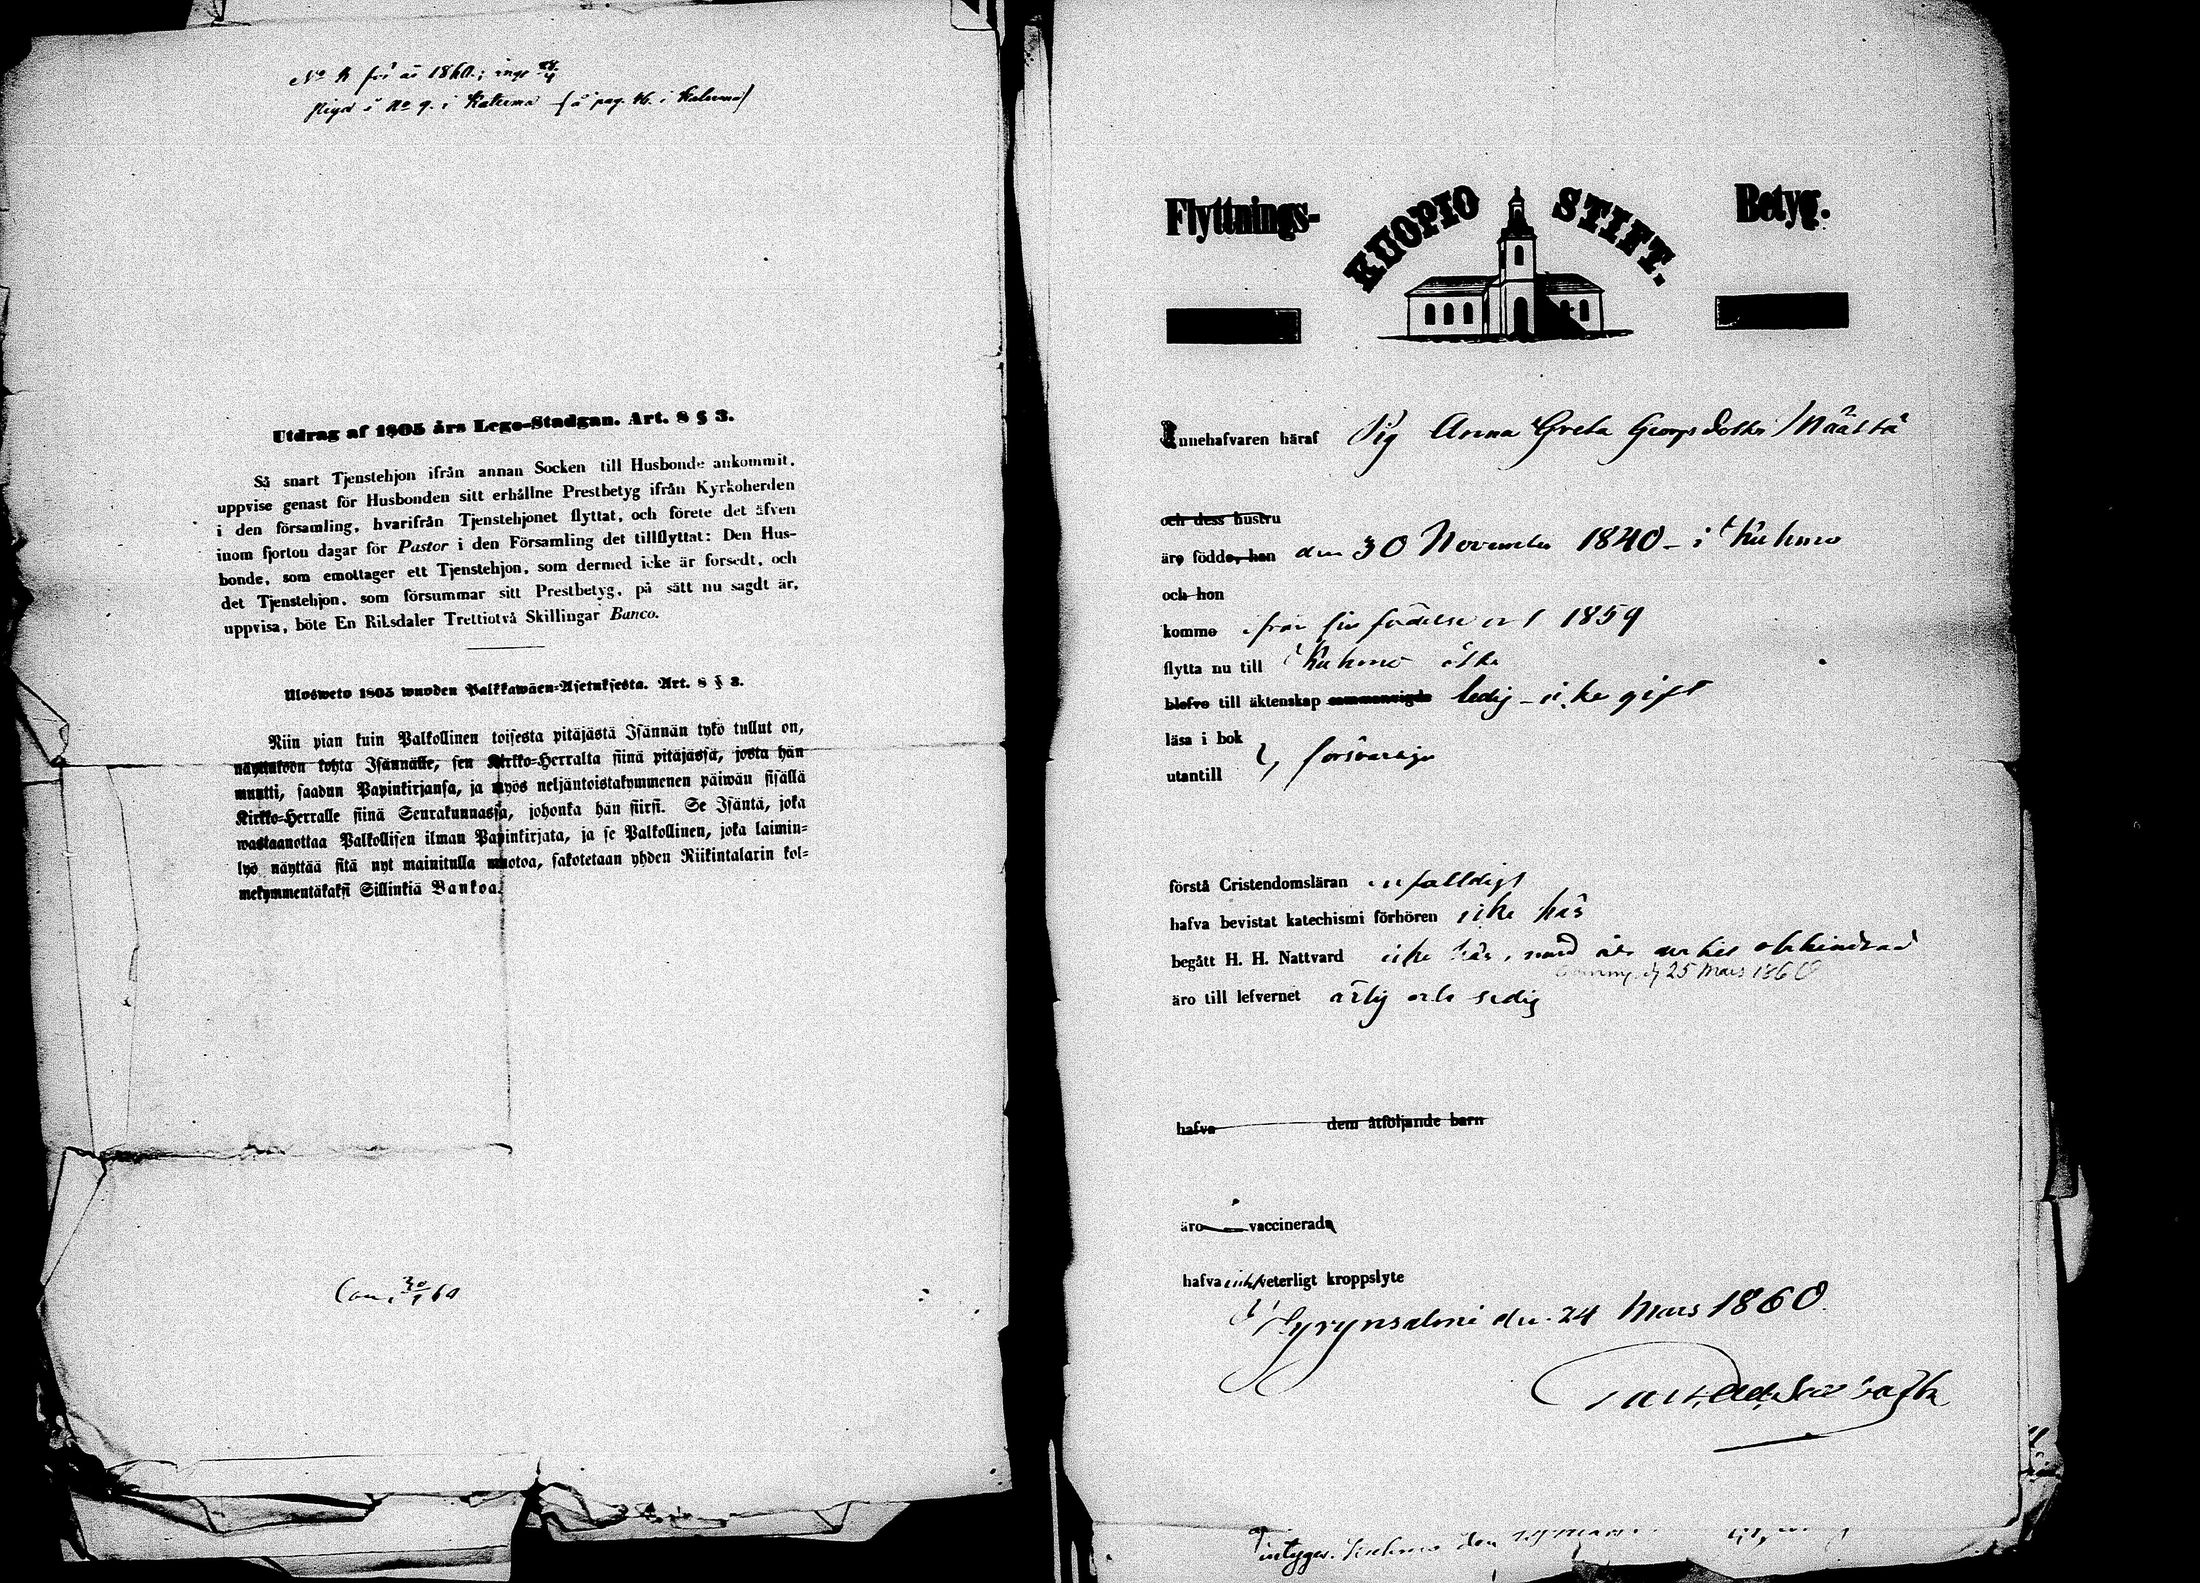 No för år 1860; ingt
i No 9. i Katerma (å pag. 46. i Katerma)
Utdrag af 1805 års Lego-Stadgan. Art. 8 § 3.
Så snart Tjenstehjon ifrån annan Socken till Husbonde ankommit,
uppvise genast för Husbonden sitt erhållne Prestbetyg ifrån Kyrkoherden
i den församling, hvarifrån Tjenstehjonet flyttat, och förete det äfven
inom fjorton dagar för Pastor i den Församling det tillflyttat: Den Hus-
bonde, som emottager ett Tjenstehjon, som dermed icke är forsedt, och
det Tjenstehjon, som försummar sitt Prestbetyg, på sätt nu sagdt är,
uppvisa, böte En Riksdaler Trettiotvå Skillingar Banco.
Ulosweto 1805 wuoden Palkkawäen-Asetuksesta. Art. 8 § 3.
Niin pian kuin Palkollinen toisesta pitäjästä Isännän tykö tullut on,
näyttäköön kohta Isännälle, sen Kirkko-Herralta siinä pitäjässä, josta hän
muutti, saadun Papinkirjansa, ja myös neljäntoistakymmenen päiwän sisällä
Kirkko-Herralle siinä Seurakunnassa, johonka hän siirsi. Se Isäntä, joka
wastaanottaa Palkollisen ilman Papinkirjata, ja se Palkollinen, joka laimin-
lyö näyttää sitä nyt mainitulla muotoa, sakotetaan yhden Riikintalarin kol-
mekymmentäkaksi Sillinkiä Bankoa.
Flyttnings- KUOPIO STIFT. Betyg.
Innehafvaren häraf Pig Anna Greta Georgsdotter Määttä
och dess hustru
äro födde, han den 30 November 1840 - i Kuhmo
och hon
komme ifrån sin födelse ort 1859
flytta nu till Kuhmo åter
blefve till äktenskap sammanvigde ledig - icke gift
läsa i bok
utantill försvarligt
förstå Cristendomsläran enfaldigt
hafva bevistat katechismi förhören icke här
begått H. H. Nattvard icke här, men är dertill obehindrad
25 Mars 1860
äro till lefvernet ärlig och sedig
hafva dem åtföljande barn
äro vaccinerade
hafva icke veterligt kroppslyte
Hyrynsalmi den 24 Mars 1860.
intygar. Kuhmo den